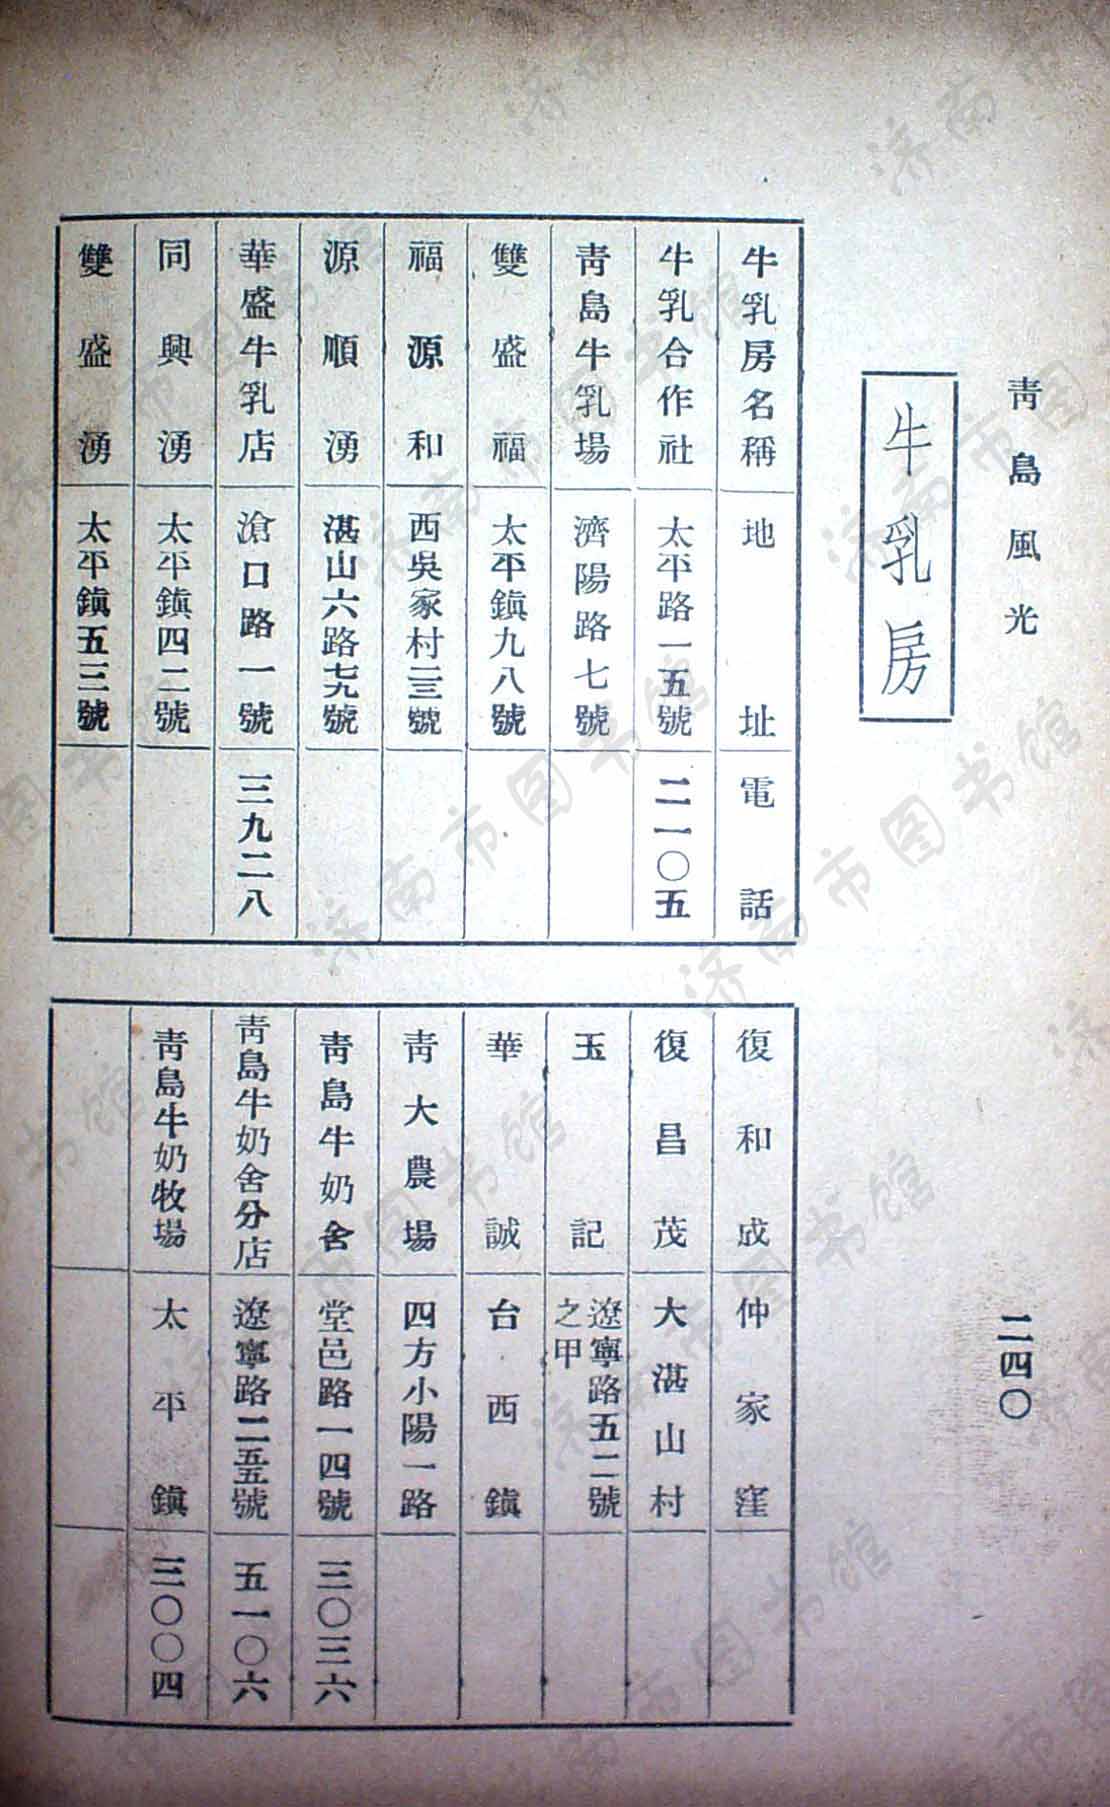 青島風光
二四〇
牛乳房
牛乳房名稱 地址 電話
牛乳合作社 太平路一五號 二一〇五
青島牛乳場 濟陽路七號
雙盛福 太平鎮九八號
福源和 西吳家村二三號
源順湧 湛山六路七九號
華盛牛乳店 滄口路一號 三九二八
同興湧 太平鎮四二號
雙盛湧 太平鎮五三號
復和成 仲家窪
復昌茂 大湛山村
玉記 遼寧路五二號之甲
華誠 台西鎮
青大農場 四方小陽一路
青島牛奶舍 堂邑路一四號 三〇三六
青島牛奶舍分店 遼寧路二五五號 五一〇六
青島牛奶牧場 太平鎮 三〇〇四
济南市图书馆